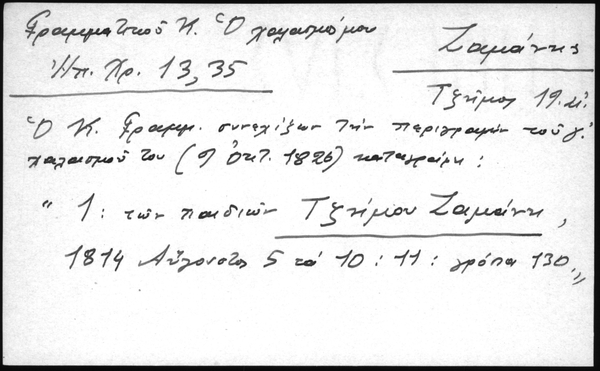 Γραμματικοῦ Κ. Ὁ χαλασμός μου
Ζαμάνης
Ἠπ. Χρ. 13, 35
Τζῆμος 19. αἰ.
Ὁ Κ. Γραμμ. συνεχίζων τὴν περιγραφὴν τοῦ
χαλασμοῦ του (9 Ὀκτ. 1826) καταγράφει :
" 1 : τῶν παιδιῶν Τζήμου Ζαμάνη,
1814 Αὔγουστος 5 τὰ 10 : 11 : γρόσια 130."